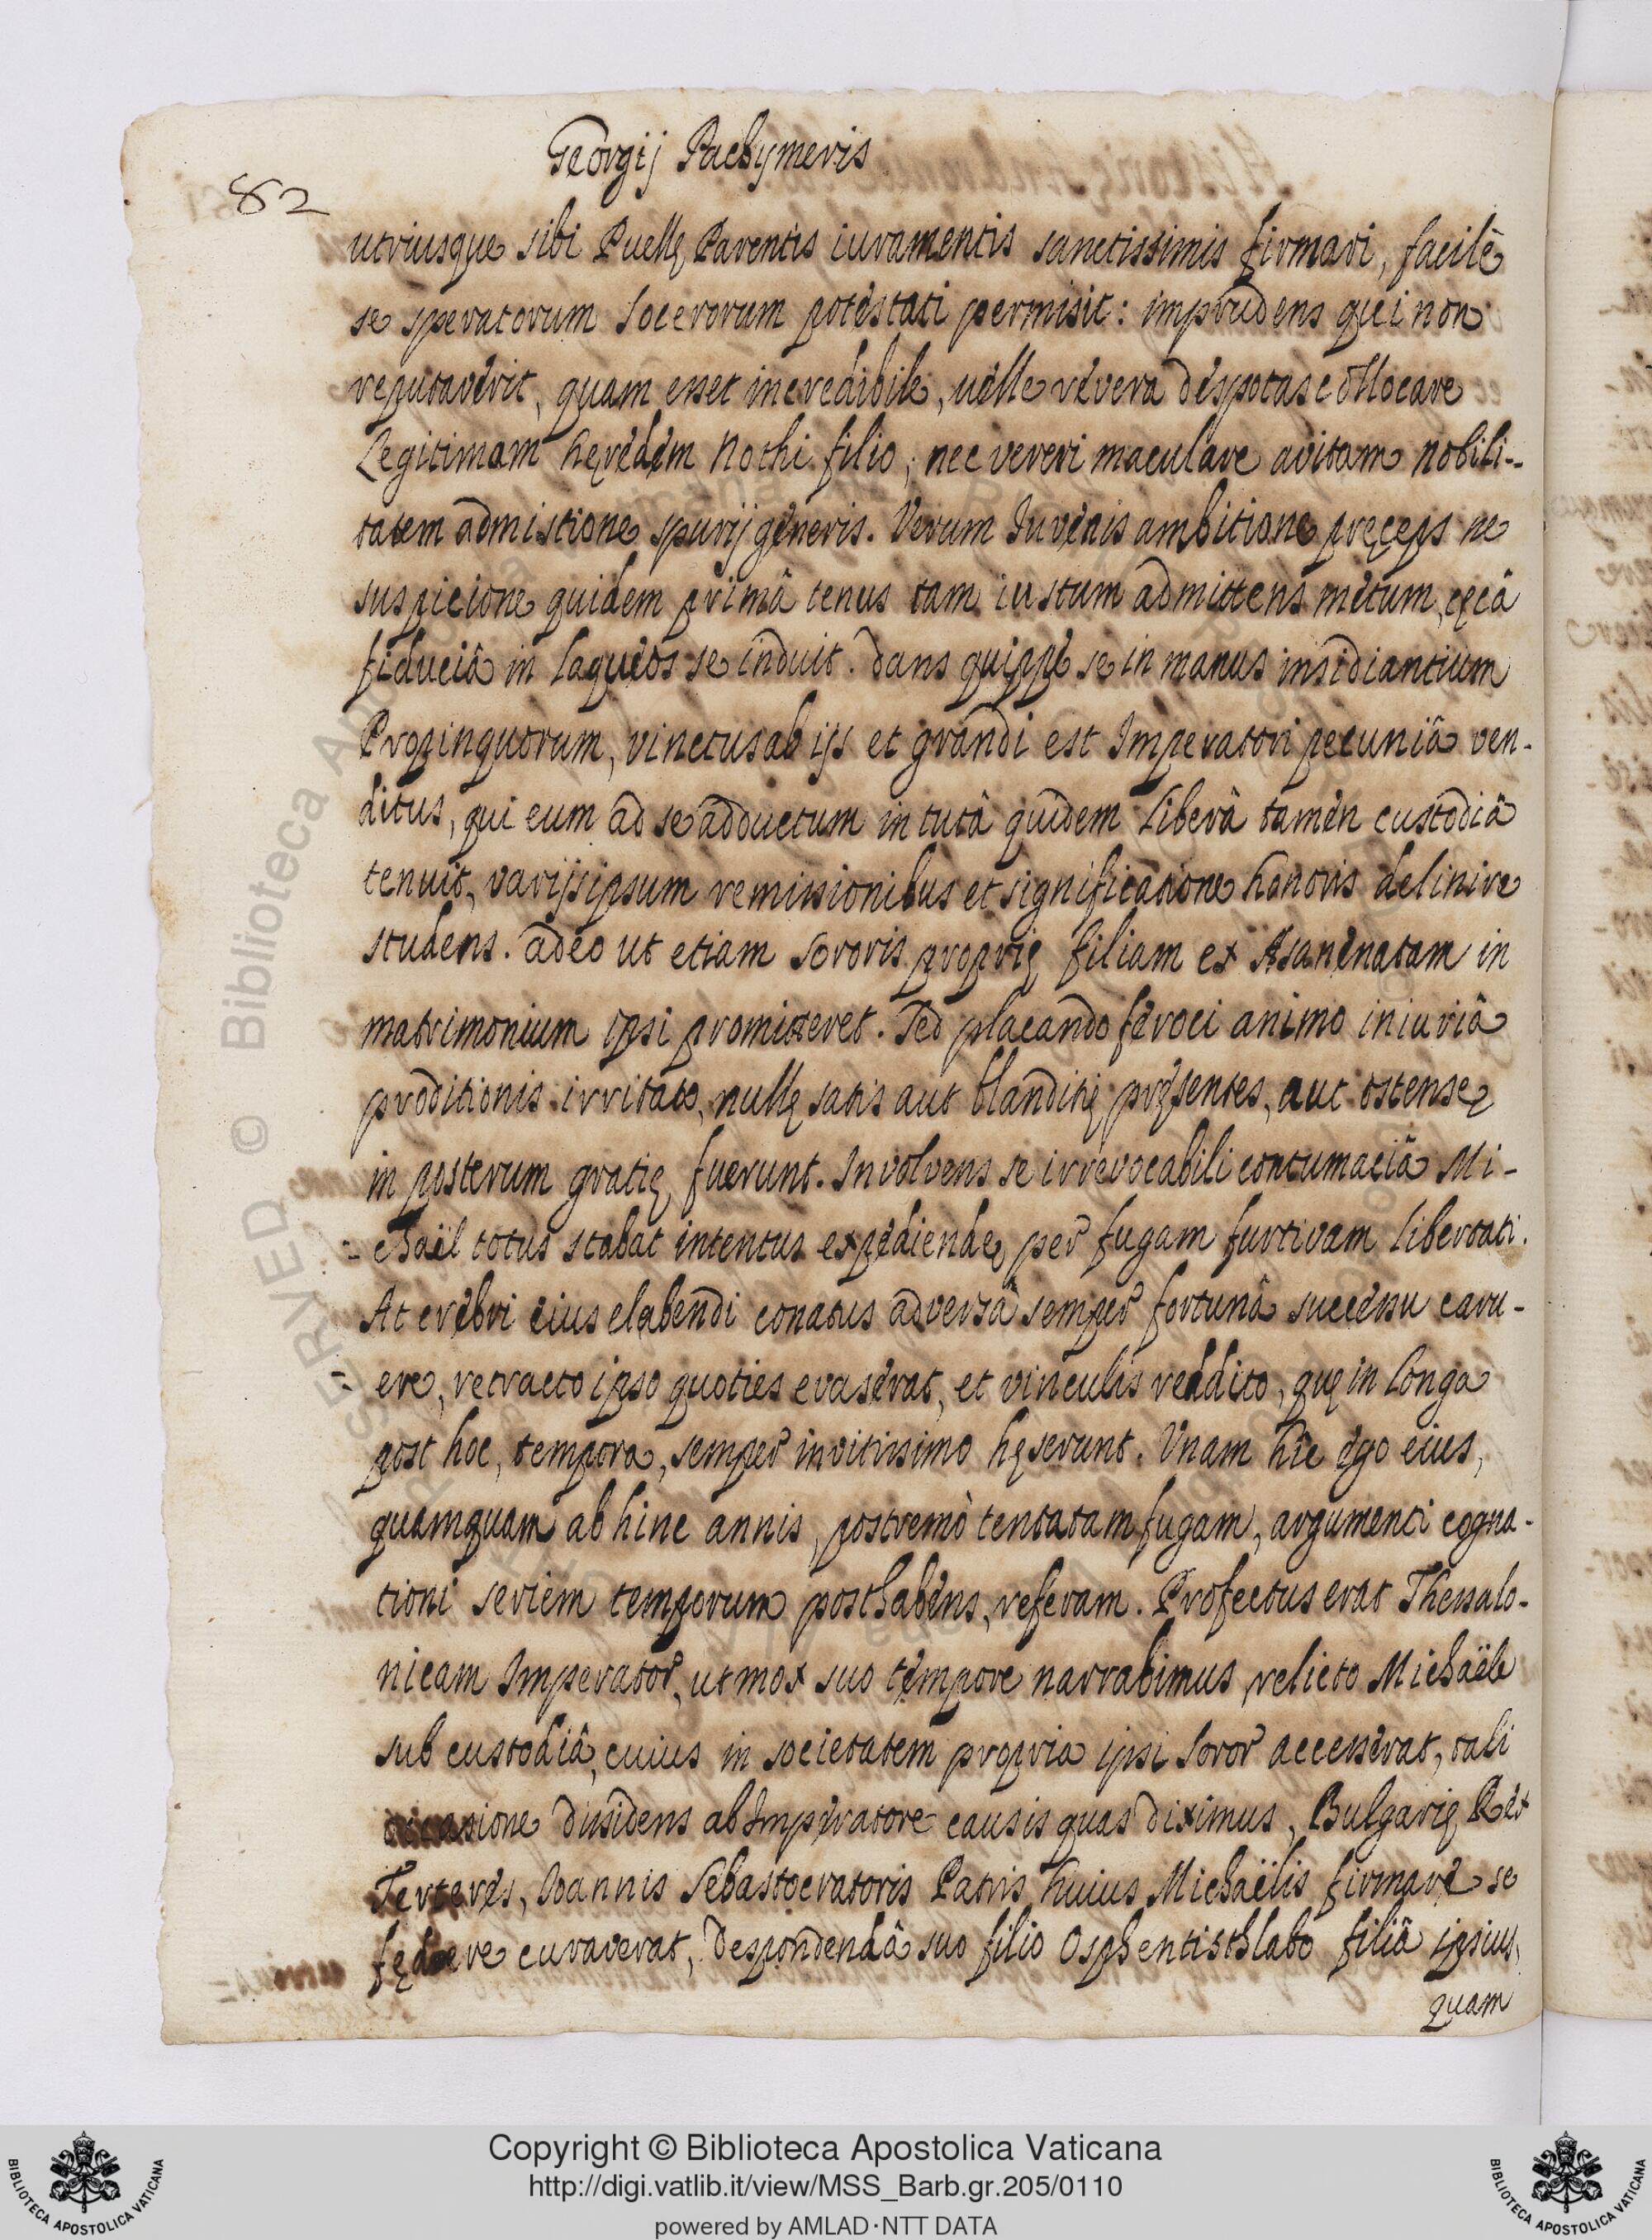 Georgij Pachymeris
82
utriusque sibi Puellę Parentis iuramentis sanctissimis firmari, facilè
se speratorum Socerorum potestati permisit: imprudens qui non
reputaverit, quam esset incredibile, velle revera despotas collocare
Legitimam hęredem Nothi filio, nec vereri maculare avitam nobili-
tatem admistione spurij generis. Verum Iuvenis ambitione pręceps ne
suspicione quidem primâ tenus tam iustum admittens metum, cęcâ
fiduciâ in laqueos se induit. Dans quippe se in manus insidiantium
Propinquorum, vinctus ab ijs et grandi est Imperatori pecuniâ ven-
ditus, qui eum ad se adductum in tutâ quidem Liberâ tamen custodiâ
tenuit, varijs ipsum remissionibus et significatione honoris delinire
studens. adeo ut etiam sororis proprię filiam ex Asane natam in
matrimonium ipsi promitteret. Sed placando feroci animo iniuriâ
proditionis irritato, nullę satis aut blanditię pręsentes, aut ostensę
in posterum gratię fuerunt. Involvens se irrevocabili contumaciâ Mi-
-chaël totus stabat intentus expediendę per fugam furtivam libertati.
At crebri eius elabendi conatus adversâ semper fortunâ successu caru-
-ere, retracto ipso quoties evaserat, et vinculis reddito, quę in longa
post hoc, tempora, semper invitissimo hęserunt. Vnam hîc ego eius,
quamquam ab hinc annis, postremò tentatam fugam, argumenti cogna-
tioni seriem temporum posthabens, referam. Profectus erat Thessalo-
nicam Imperator, ut mox suo tempore narrabimus, relicto Michaële
sub custodiâ, cuius in societatem propria ipsi soror accesserat, tali
occasione dissidens ab Imperatore causis quas diximus, Bulgarię Rex
Terteres, Ioannis Sebastocratoris Patris huius Michaëlis firmare se
fędere curaverat, despondendâ suo filio Osphentisthlabo filiâ ipsius,
quam
Copyright © Biblioteca Apostolica Vaticana
http://digi.vatlib.it/view/MSS_Barb.gr.205/0110
powered by AMLAD·NTT DATA
BIBLIOTECA APOSTOLICA VATICANA
BIBLIOTECA APOSTOLICA VATICANA